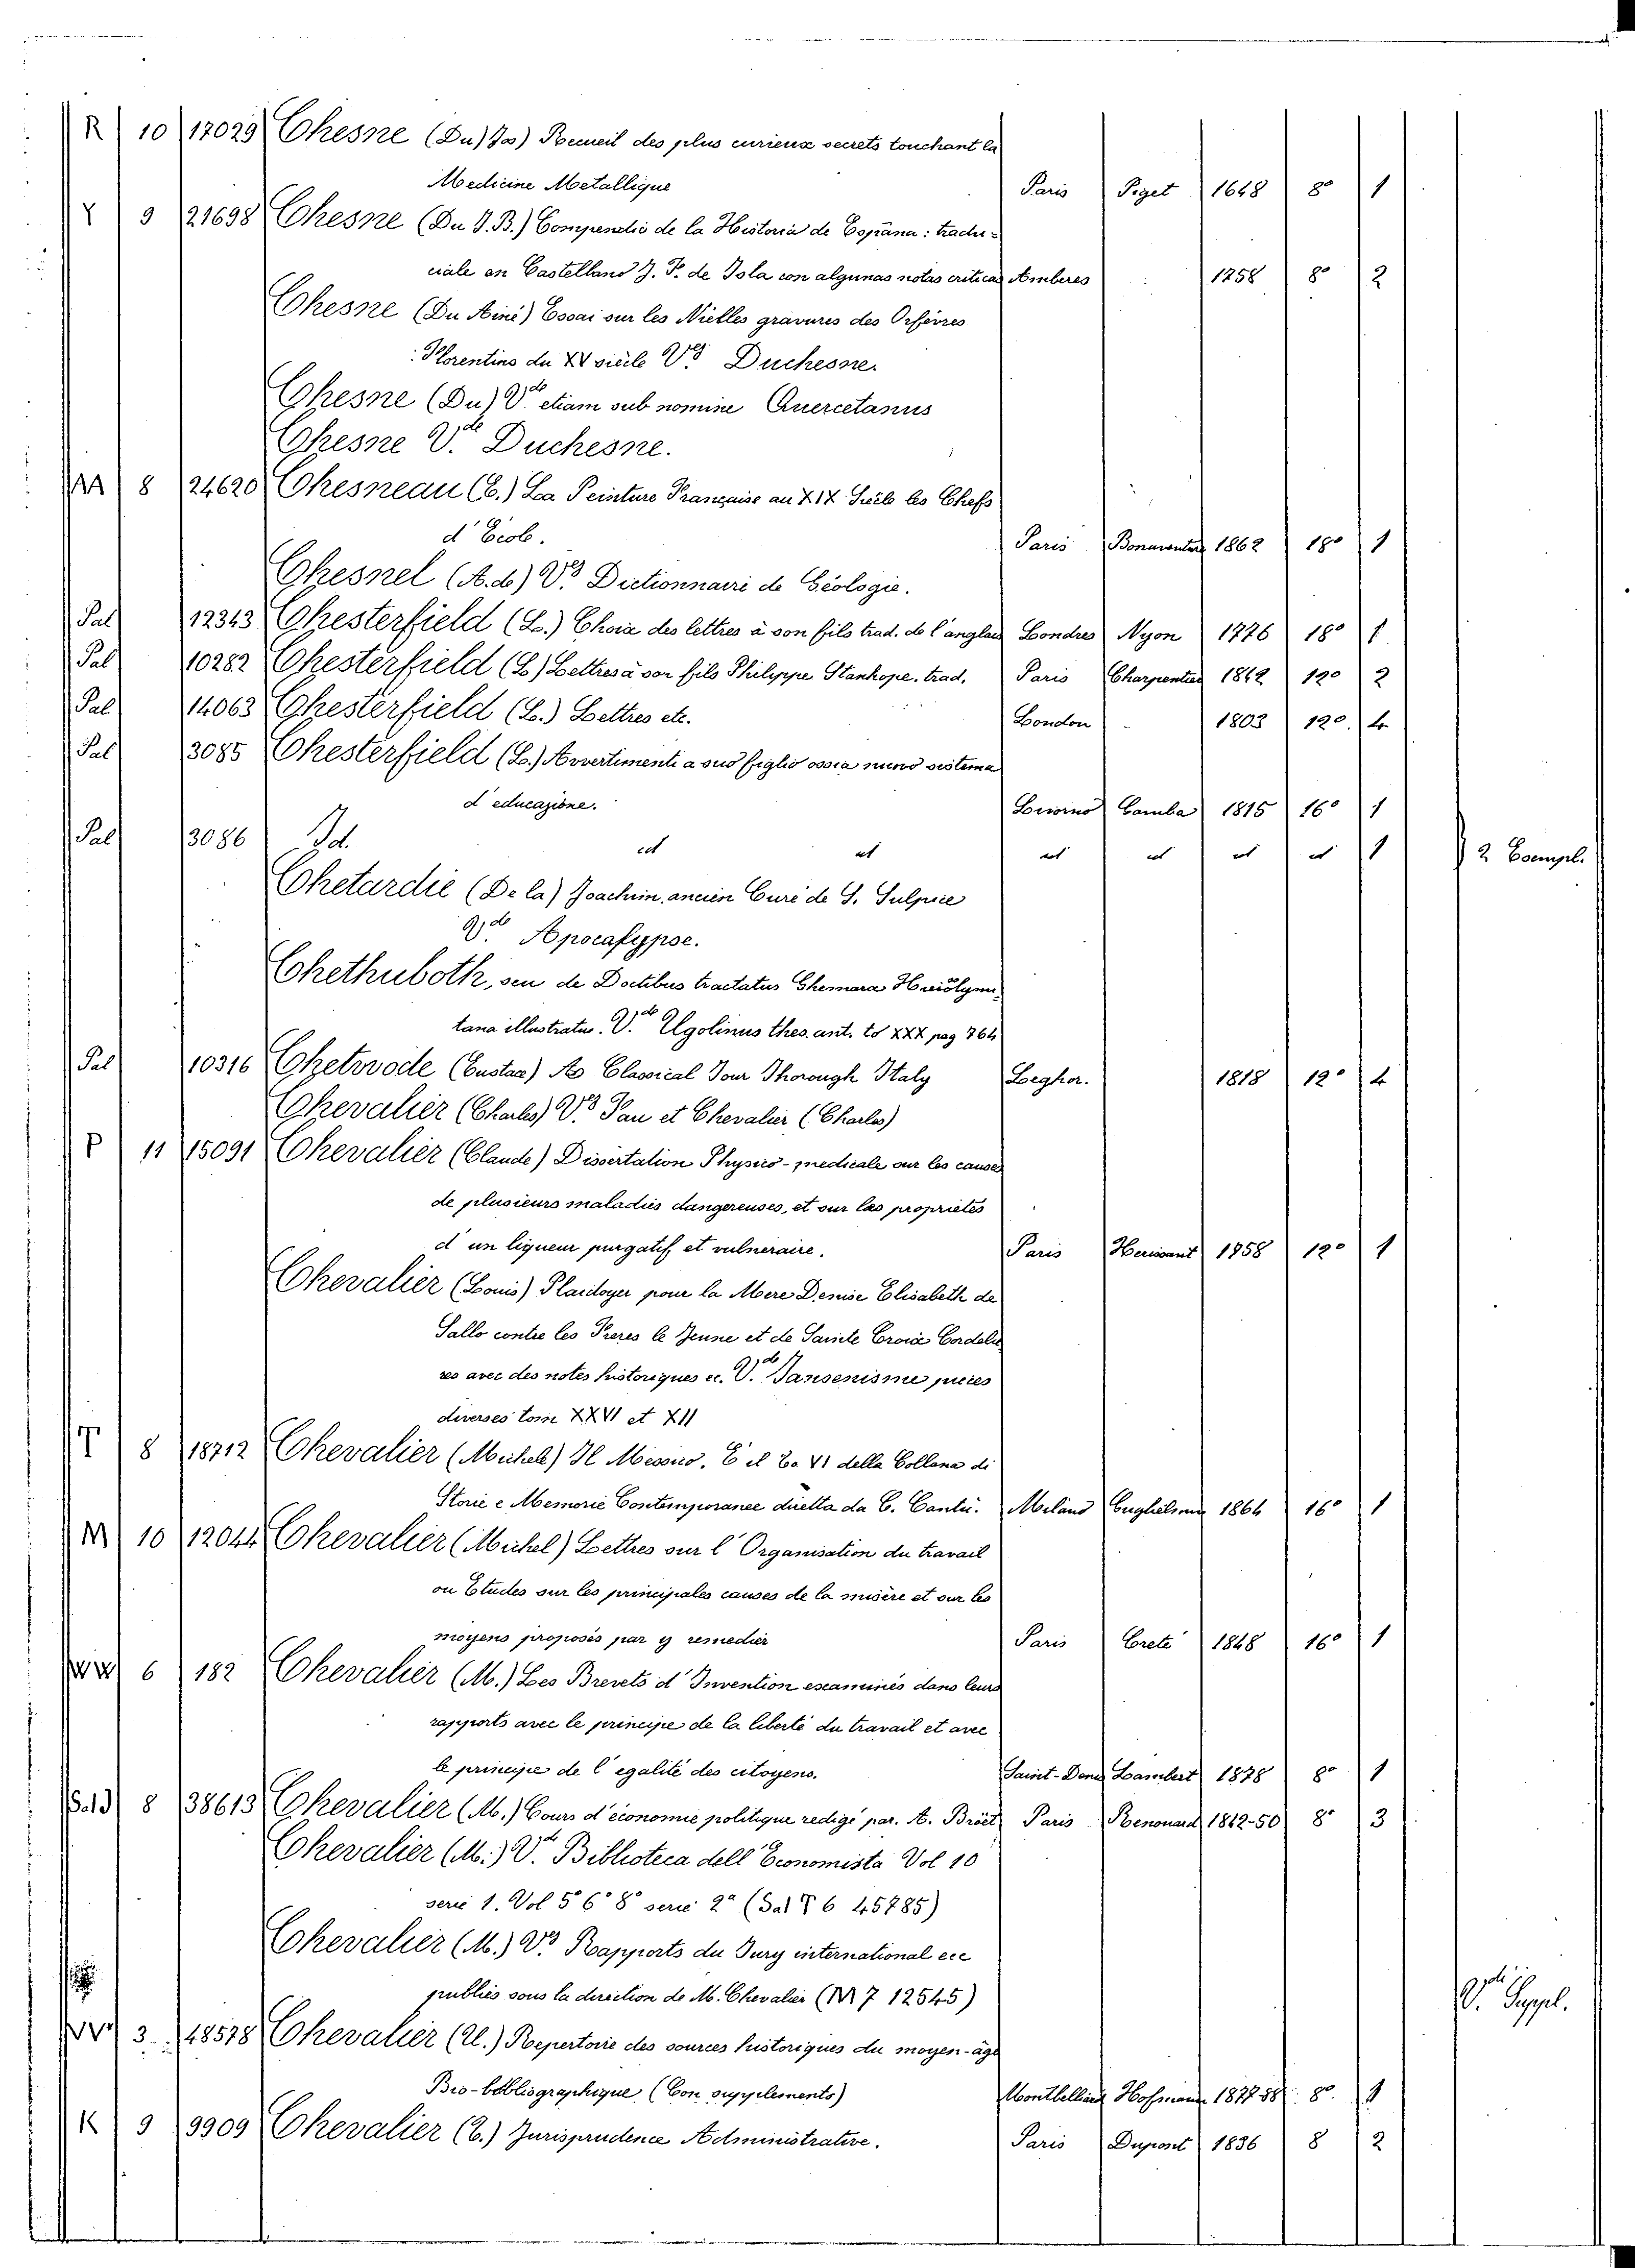 R 10 17029 Chesne (Du) Jos) Recueil des plus curieux secrets touchant la
Medicine Metallique Paris Piget 1648 8° 1
Y 9 21698 Chesne (Du J. B.) Compendio de la Historia de Espana: tradu-
ciale en Castellano J. F. de Isla con algunas notas criticas Amberes 1758 8° 2
Chesne (Du Ainé) Essai sur les Nielles gravures des Orfévres
Florentins du XV siécle Vd Duchesne.
Chesne (Du) Vde etiam sub nomine Quercetanus
Chesne Vde Duchesne.
AA 8 24620 Chesneau (E.) La Peinture Française au XIX Siécle les Chefs
d'Ecole. Paris Bonaventure 1862 18° 1
Chesnel (A. de) Vd Dictionnairi de Géologie.
Pal 12343 Chesterfield (L.) Choix des lettres à son fils trad. de l'anglais Londres Nyon 1776 18° 1
Pal 10282 Chesterfield (L.) Lettres à son fils Philyppe Stanhope. trad. Paris Charpentier 1842 12° 2
Pal 14063 Chesterfield (L.) Lettres etc. London 1803 12° 4
Pal 3085 Chesterfield (L.) Avvertimenti a suo figlio ossia nuovo sistema
d'educazione. Livorno Gamba 1815 16° 1
Pal 3086 Id. id id id id id id 1 2 Esempl.
Chetardie (De la) Joachim, ancien Curé de S. Sulpice
Vde Apocafypse.
Chethuboth, seu de Doctibus tractatus Ghemara Hierolymi-
tana illustratus. Vde Ugolinus thes. ant. to XXX pag 764
Pal 10316 Chetwode (Eustace) As Classical Tour Thorough Italy Leghor. 1818 12° 4
Chevalier (Charles) Vd Pau et Chevalier (Charles)
P 11 15091 Chevalier (Claude) Dissertation Physico-medicale sur les causes
de plusieurs maladies dangereuses, et sur las proprietes
d'un liqueur purgatif et vulneraire. Paris Herissant 1758 12° 1
Chevalier (Louis) Plaidoyer pour la Mere Denise Elisabeth de
Sallo contre les Freres le Jeune et de Sainte Croix Cordelie
res avec des notes historiques ec. Vde Jansenisme pieces
diverses tome XXVI et XII
T 8 18712 Chevalier (Michele) Il Messico. E' il Vo VI della Collana di
Storie e Memorie Contemporanee diretta da C. Cantù. Milano Guglielmini 1864 16° 1
M 10 12044 Chevalier (Michel) Lettres sur l'Organisation du travail
ou Etudes sur les principales causes de la misère et sur les
moyens proposés par y remedier Paris Crété 1848 16° 1
WW 6 182 Chevalier (M.) Les Brevets d'Invention examinés dans leurs
rapports avec le principe de la liberté du travail et avec
le principe de l'egalité des citoyens. Saint-Denis Lambert 1878 8° 1
8 38613 Chevalier (M.) Cours d'économie politique redigé par. A. Broët Paris Renouard 1842-50 8° 3
Chevalier (M.) Vde Biblioteca dell'Economista Vol 10
serie 1. Vol 5° 6° 8° serie 2ª (Sal T 6 45785)
Chevalier (M.) Vd Rapports du Jury international ecc
publiés sous la direction de M. Chevalier (M 7 12545) Vde Suppl.
VV 3 48578 Chevalier (U.) Repertoire des sources historiques du moyen-âge
Bio-bibliographique (Con supplements) Montbelliard Hofmann 1877-88 8° 1
K 9 9909 Chevalier (E.) Jurisprudence Administrative. Paris Dupont 1836 8 2